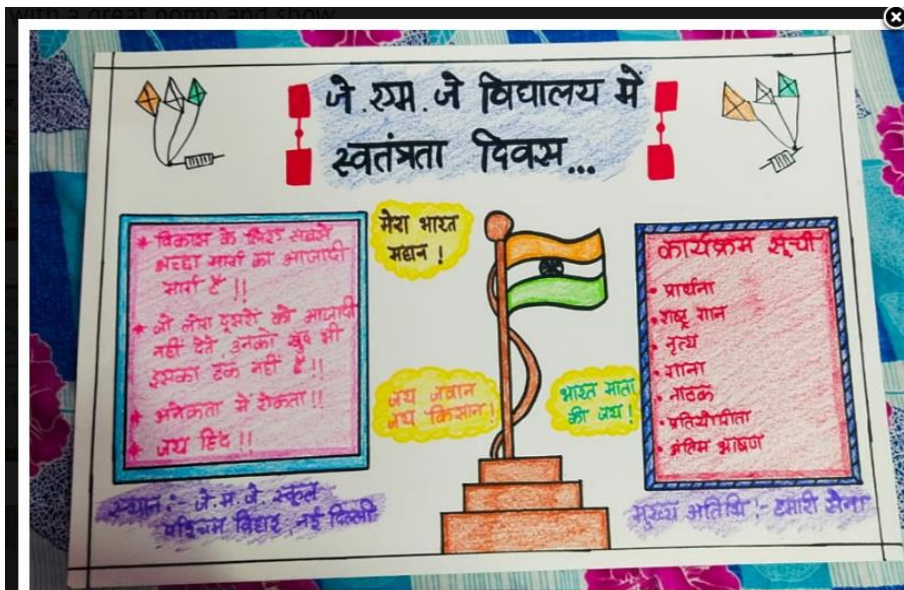 with a great pomp and show
जे.एम.जे विद्यालय में
स्वतंत्रता दिवस...
* विकास के लिए सबसे
अच्छा मार्ग का आजादी
मार्ग है !!
* जो लोग दूसरों को आजादी
नहीं देते, उनको खुद भी
इसका हक नहीं है !!
* अनेकता मे ऐकता !!
* जय हिंद !!
मेरा भारत
महान !
जय जवान
जय किसान !
भारत माता
की जय !
कार्यक्रम सूची
• प्रार्थना
• राष्ट्र गान
• नृत्य
• गाना
• नाटक
• प्रतियोगीता
• अंतिम भाषण
स्थान :- जे.म.जे. स्कूल
पश्चिम विहार, नई दिल्ली
मुख्य अतिथि :- हमारी सेना